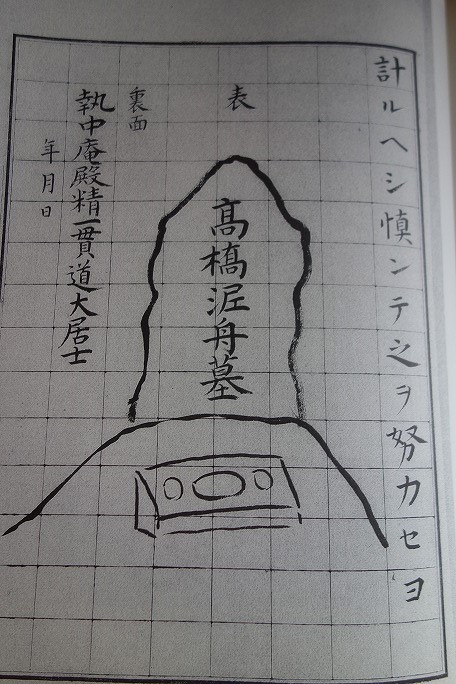 計ルヘシ慎ンテ之ヲ努力セヨ
表
高橋泥舟墓
裏面
執中庵殿精一貫道大居士
年月日